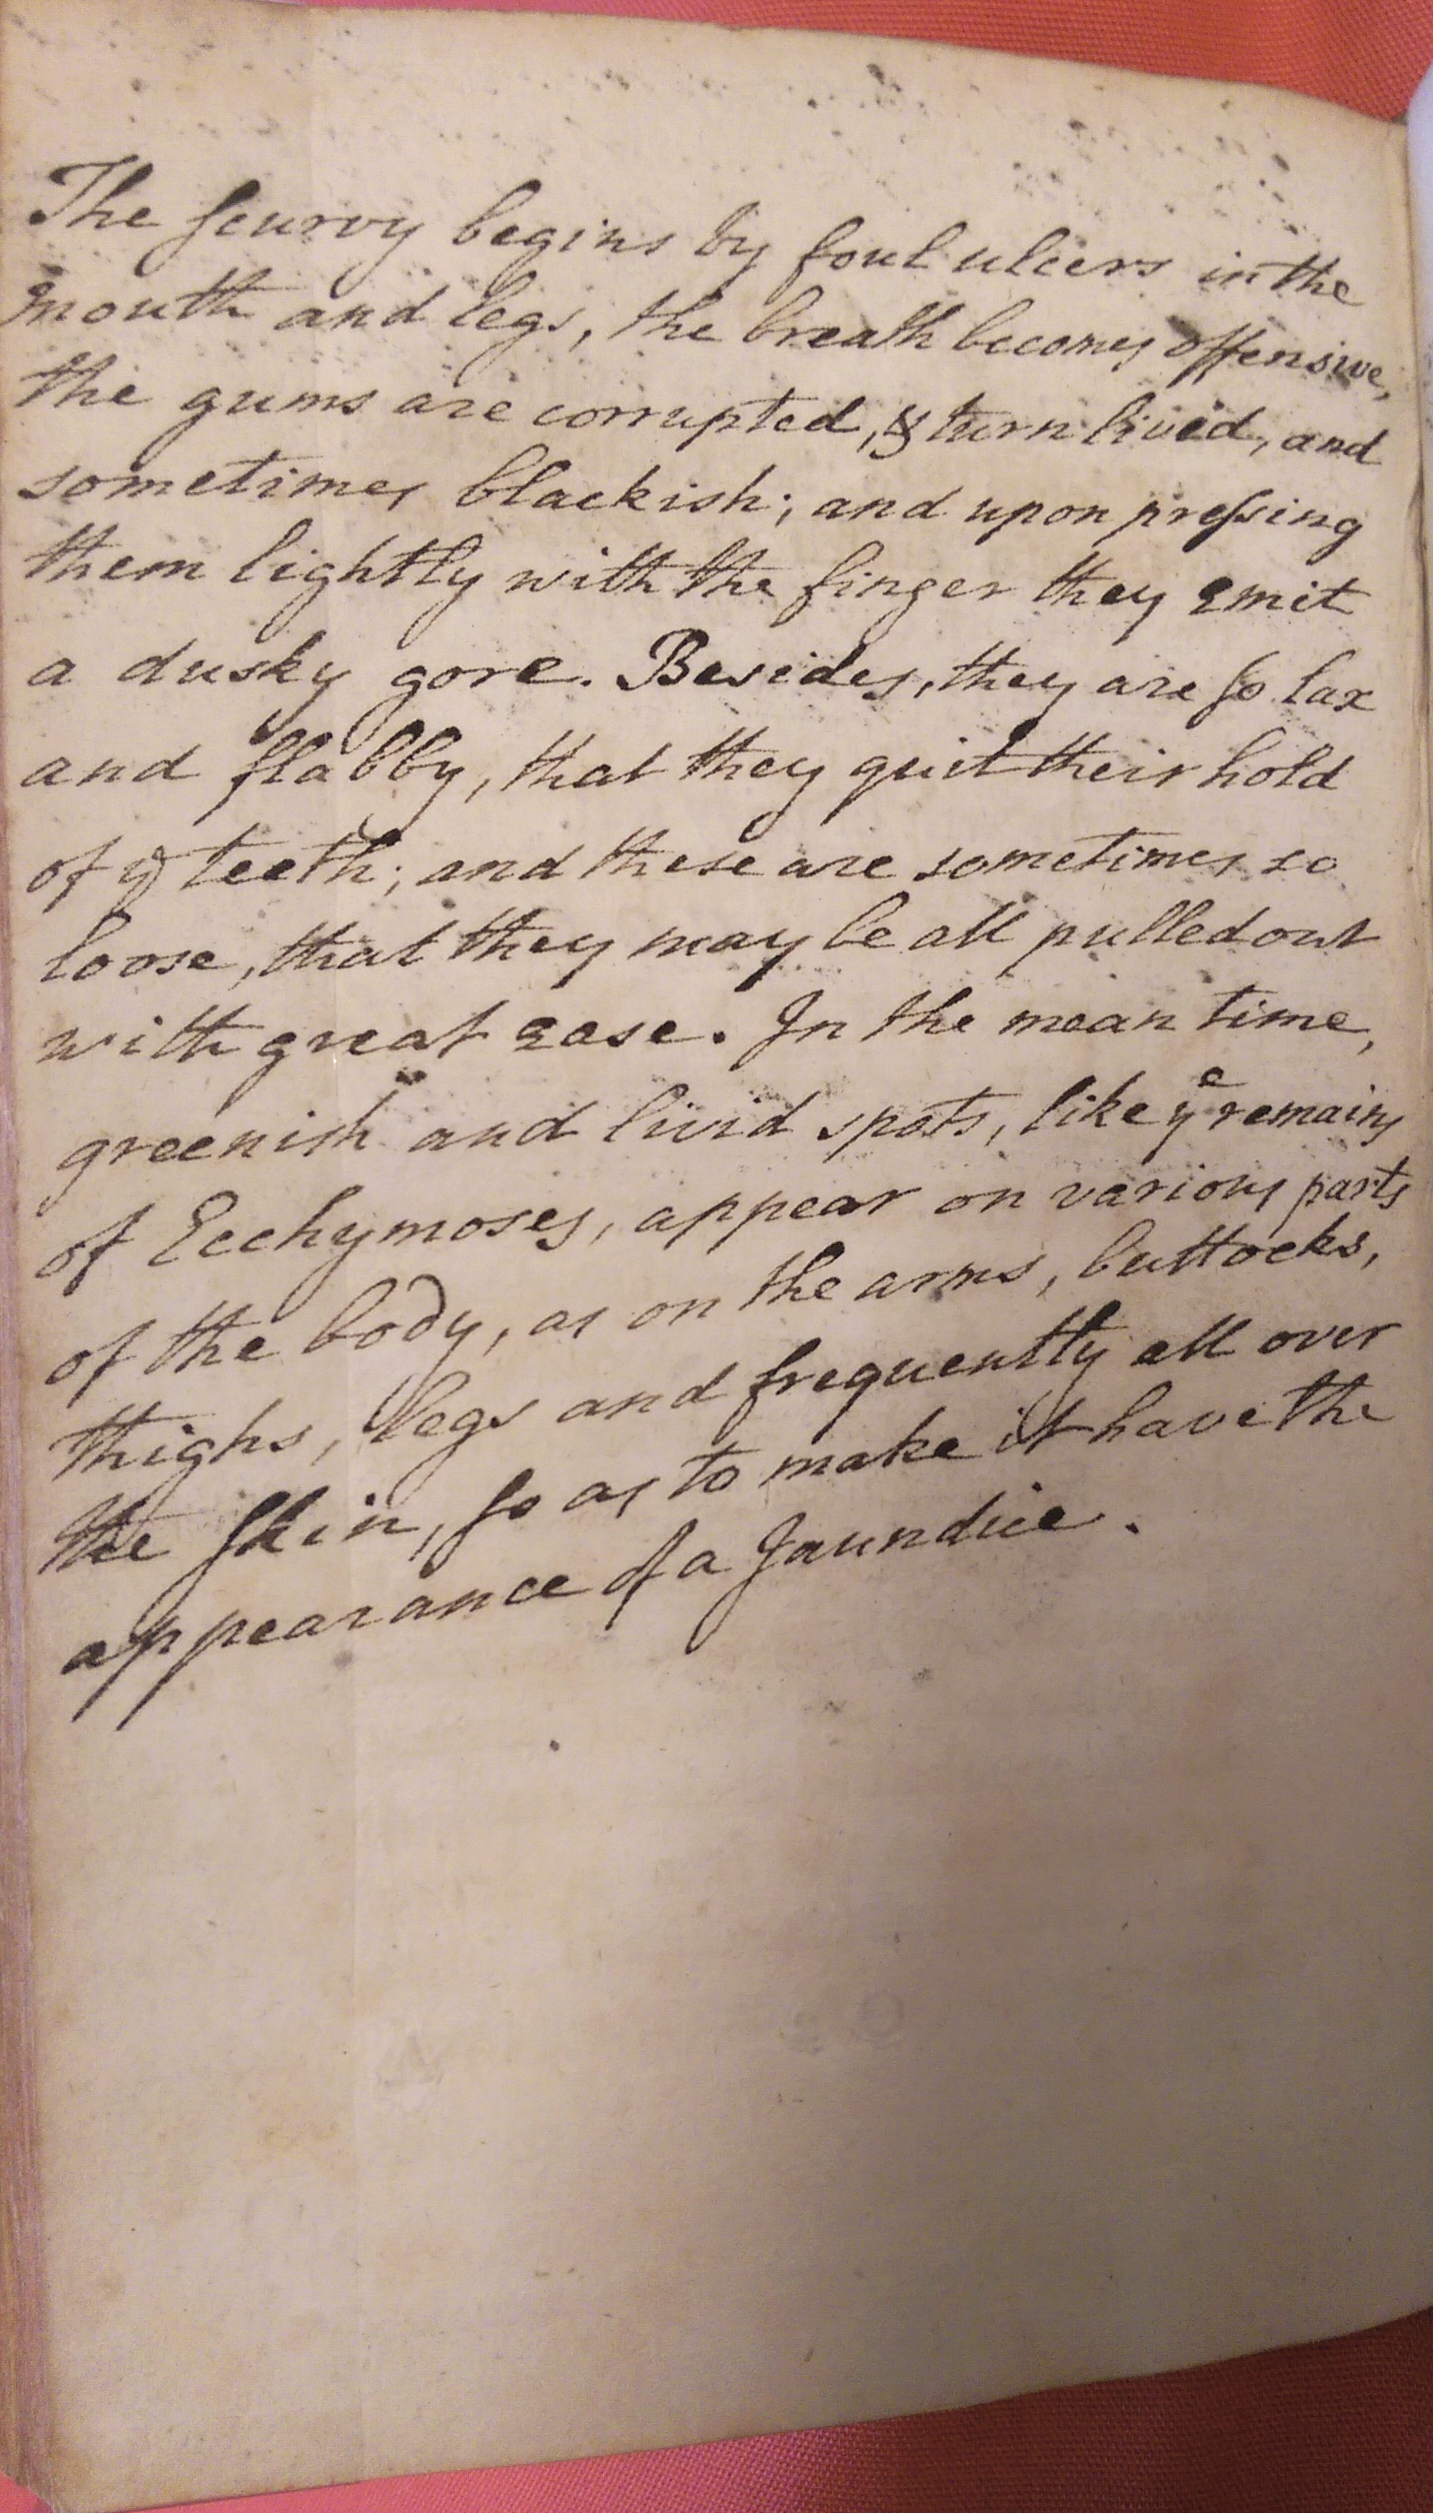 The ſcurvy begins by foul ulcers in the
mouth and legs, the breath becomes offensive,
the gums are corrupted, & turn livid, and
sometimes blackish; and upon preſsing
them lightly with the finger they emit
a dusky gore. Besides, they are ſo lax
and flabby, that they quit their hold
of yᵉ teeth; and these are sometimes so
loose, that they may be all pulled out
with great ease. In the mean time,
greenish and livid spots, like yᵉ remains
of Ecchymoses, appear on various parts
of the body, as on the arms, buttocks,
thighs, legs and frequently all over
the ſkin, ſo as to make it have the
appearance of a Jaundice.